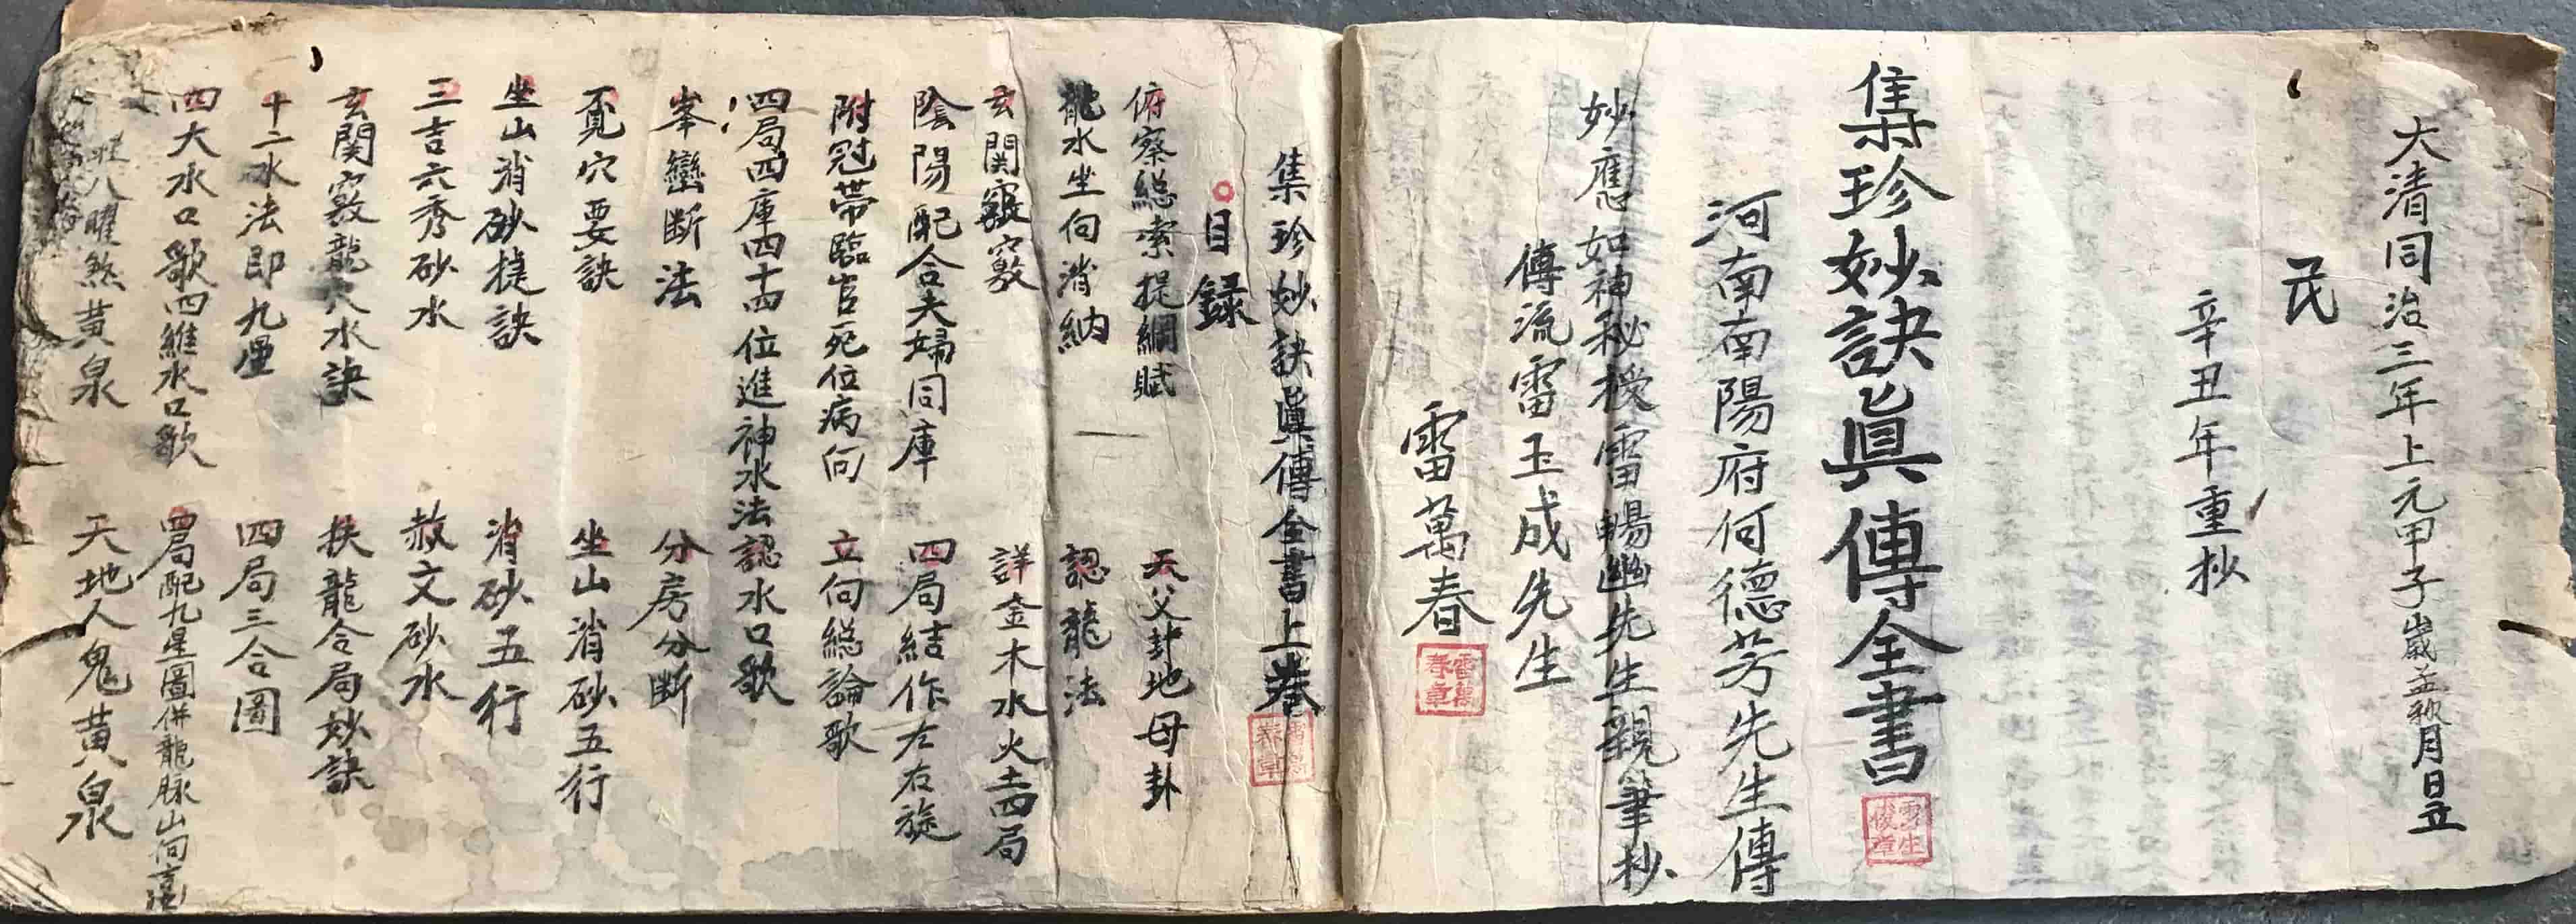 大清同治三年上元甲子歲孟秋月日立
民
辛丑年重抄
集珍妙訣眞傳全書
河南南陽府何德芳先生傳
妙應如神秘授雷暢幽先生親筆抄
傳流雷玉成先生
雷萬春
雷萬春章
集珍妙訣眞傳全書上卷
目録
俯察総索提綱賦
天父卦地母卦
龍水坐向消納
認龍法
玄関竅
詳金木水火土四局
陰陽配合夫婦同庫
四局結作左右旋
附冠帶臨官死位病向
立向総論歌
四局四庫四十四位進神水法認水口歌
峯巒斷法
分房分斷
覔穴要訣
坐山消砂五行
坐山消砂捷訣
消砂五行
三吉六秀砂水
赦文砂水
玄関竅龍穴水訣
扶龍合局妙訣
十二水法即九星
四局三合圖
四大水口歌四維水口歌
四局配九星圖併龍脉山向
八曜煞黃泉
天地人鬼黃泉